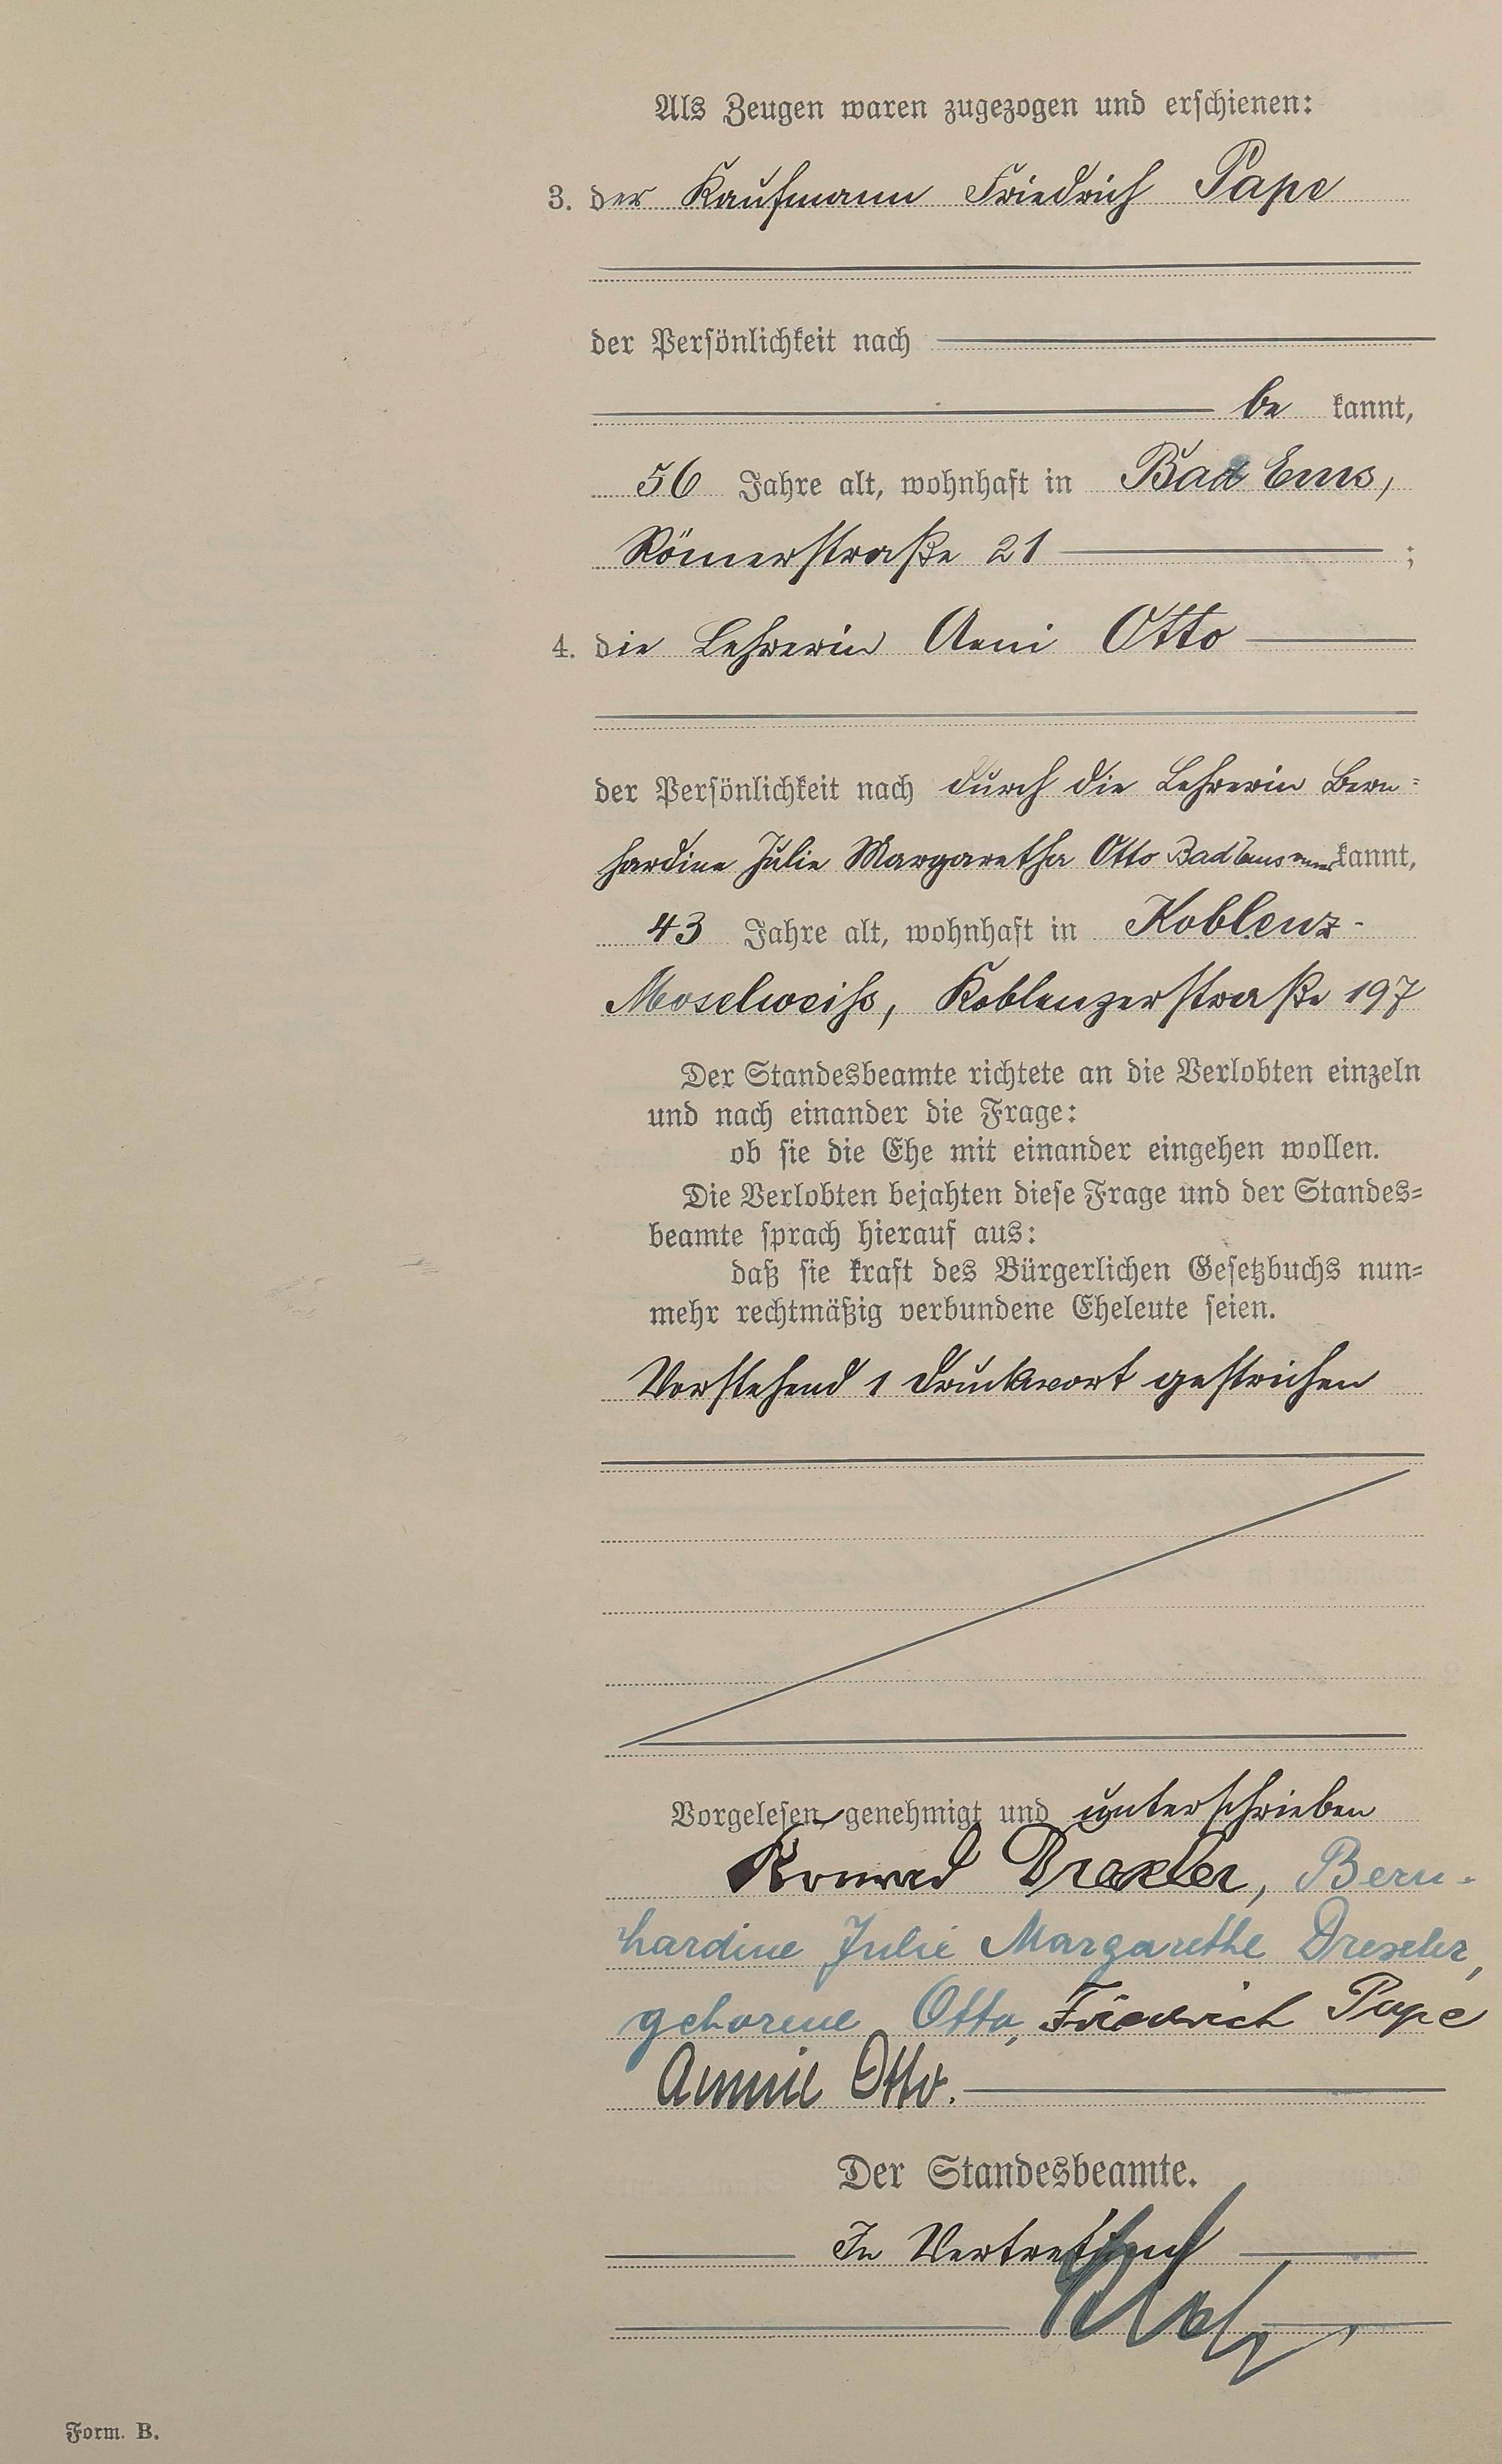 Als Zeugen waren zugezogen und erschienen:
3. der Kaufmann Friedrich Pape
der Persönlichkeit nach
be kannt,
56 Jahre alt, wohnhaft in Bad Ems,
Römerstraße 21 ;
4. die Lehrerin Aeni Otto
der Persönlichkeit nach durch die Lehrerin Bern=
hardine Julie Margaretha Otto Bad Ems kannt,
43 Jahre alt, wohnhaft in Koblenz-
Moselweiss, Koblenzerstraße 197
Der Standesbeamte richtete an die Verlobten einzeln
und nach einander die Frage:
ob sie die Ehe mit einander eingehen wollen.
Die Verlobten bejahten diese Frage und der Standes=
beamte sprach hierauf aus:
daß sie kraft des Bürgerlichen Gesetzbuchs nun=
mehr rechtmäßig verbundene Eheleute seien.
Vorstehend 1 Druckwort gestrichen
Vorgelesen, genehmigt und unterschrieben
Konrad Drexler, Bern-
hardine Julie Margarethe Drexler,
geborene Otto, Friedrich Pape
Annie Otto.
Der Standesbeamte.
In Vertretung
Form. B.